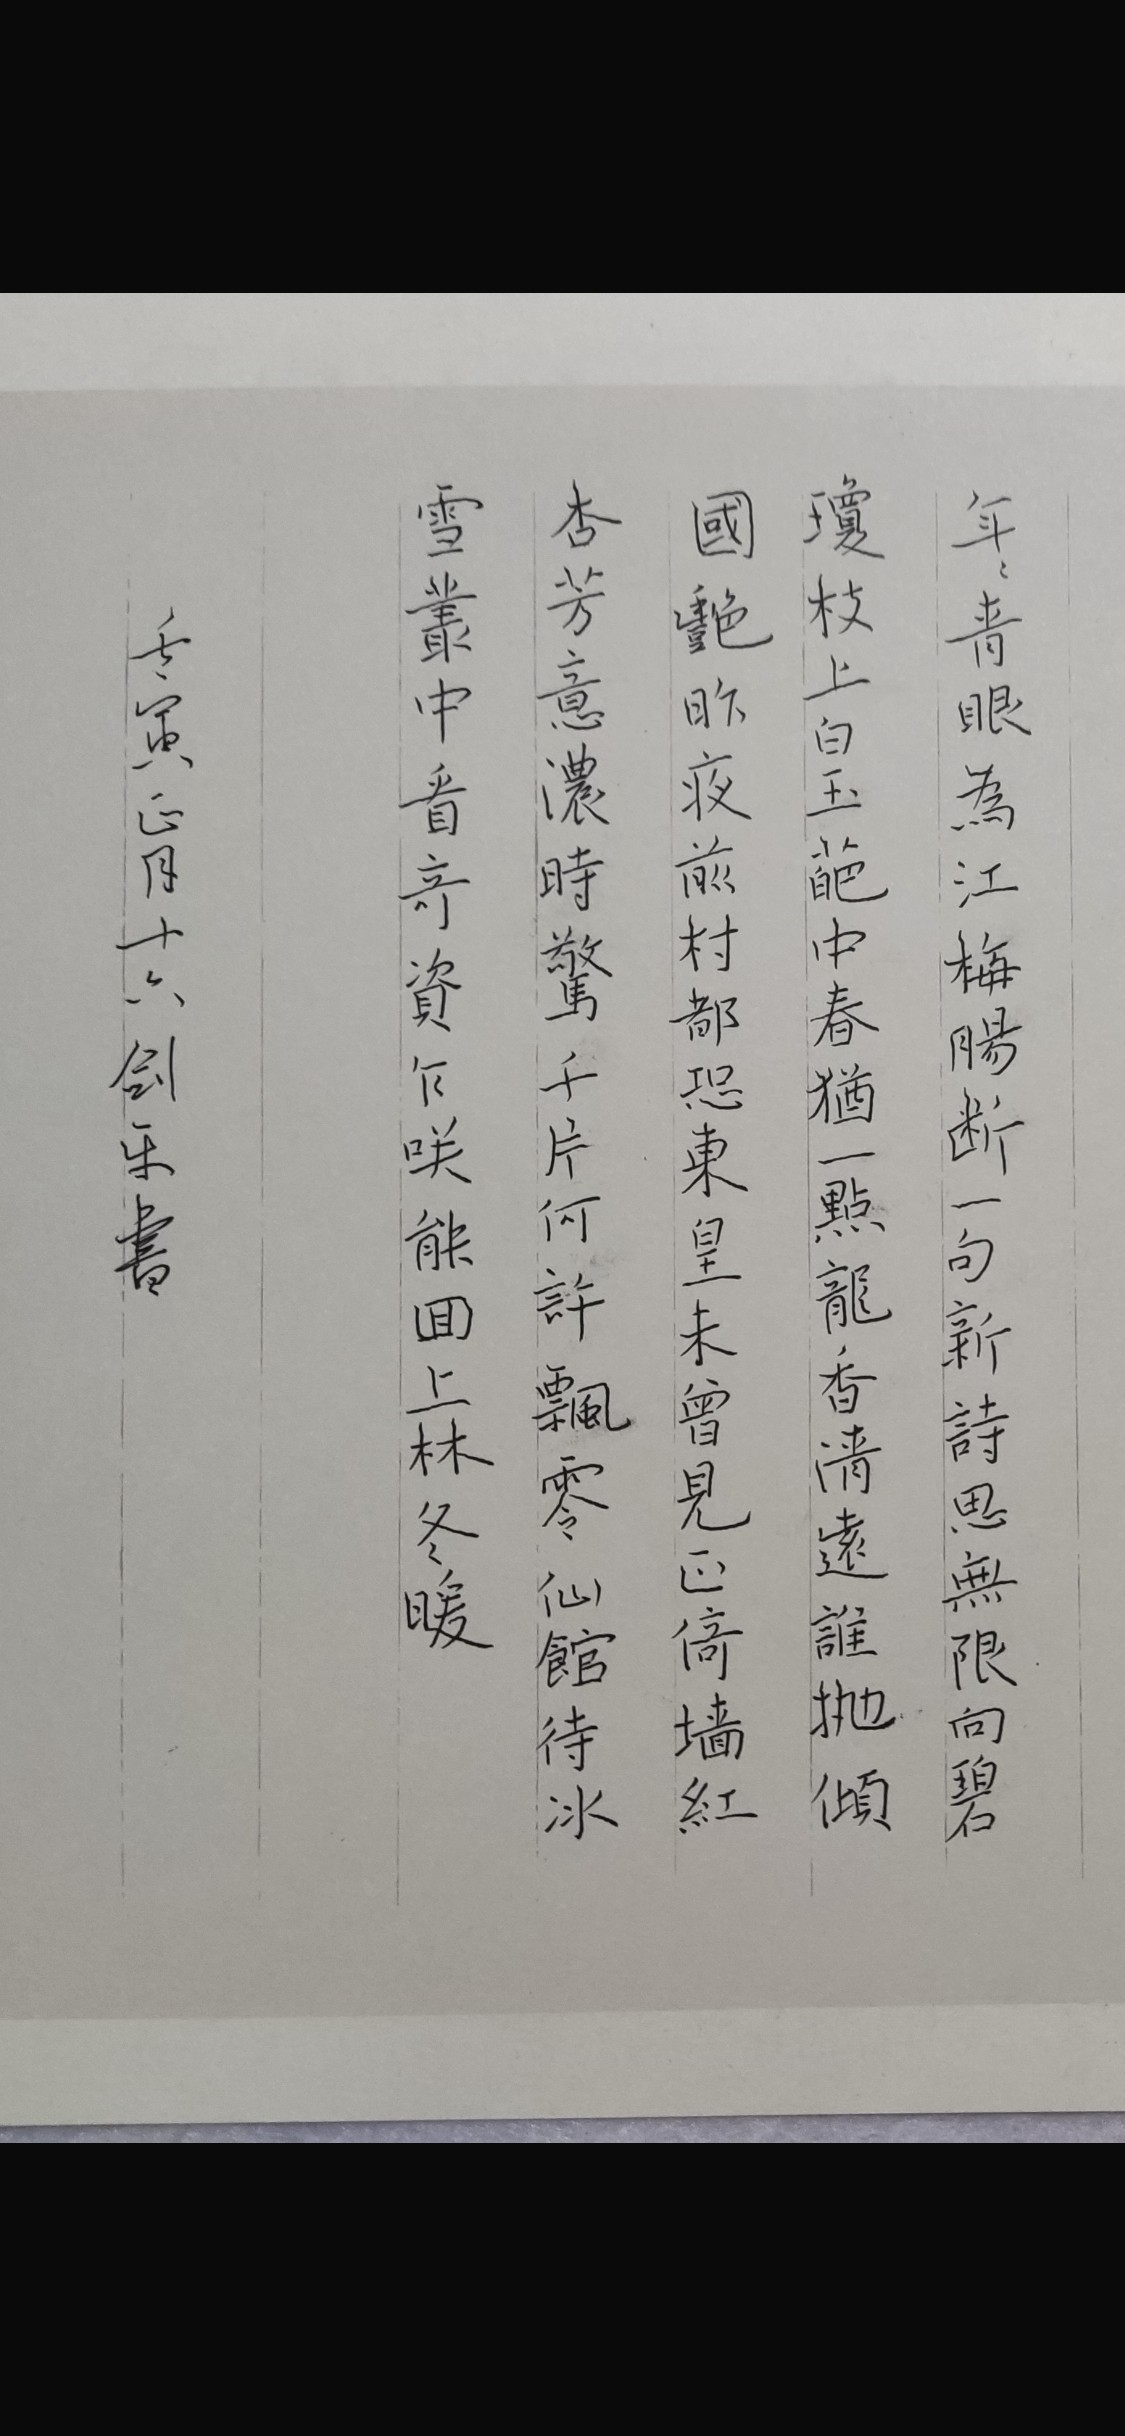 年々青眼為江梅腸断一句新詩思無限向碧
瓊枝上白玉葩中春猶一點龍香清遠誰抛傾
國艷昨夜前村都恐東皇未曾見正倚墻紅
杏芳意濃時驚千片何許飄零仙館待冰
雪叢中看奇資乍咲能回上林冬暖
壬寅正月十六劍乐書